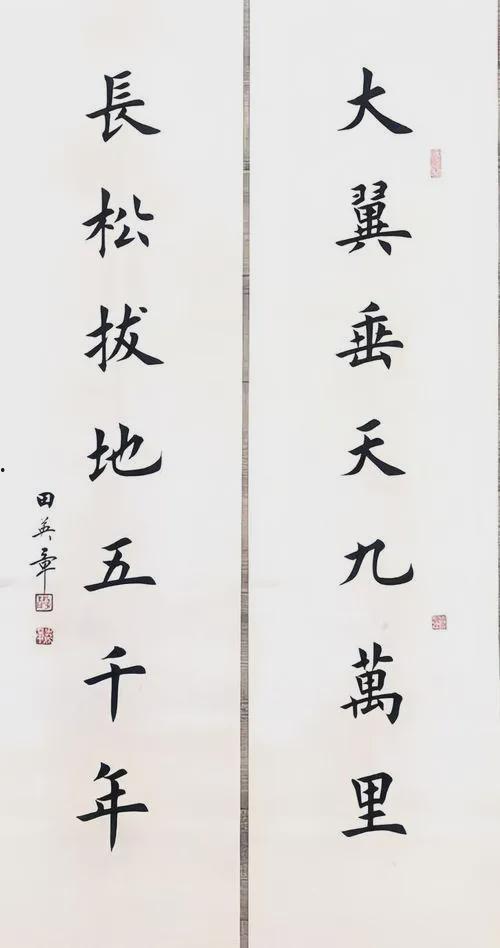 大翼垂天九萬里
長松拔地五千年
田英章